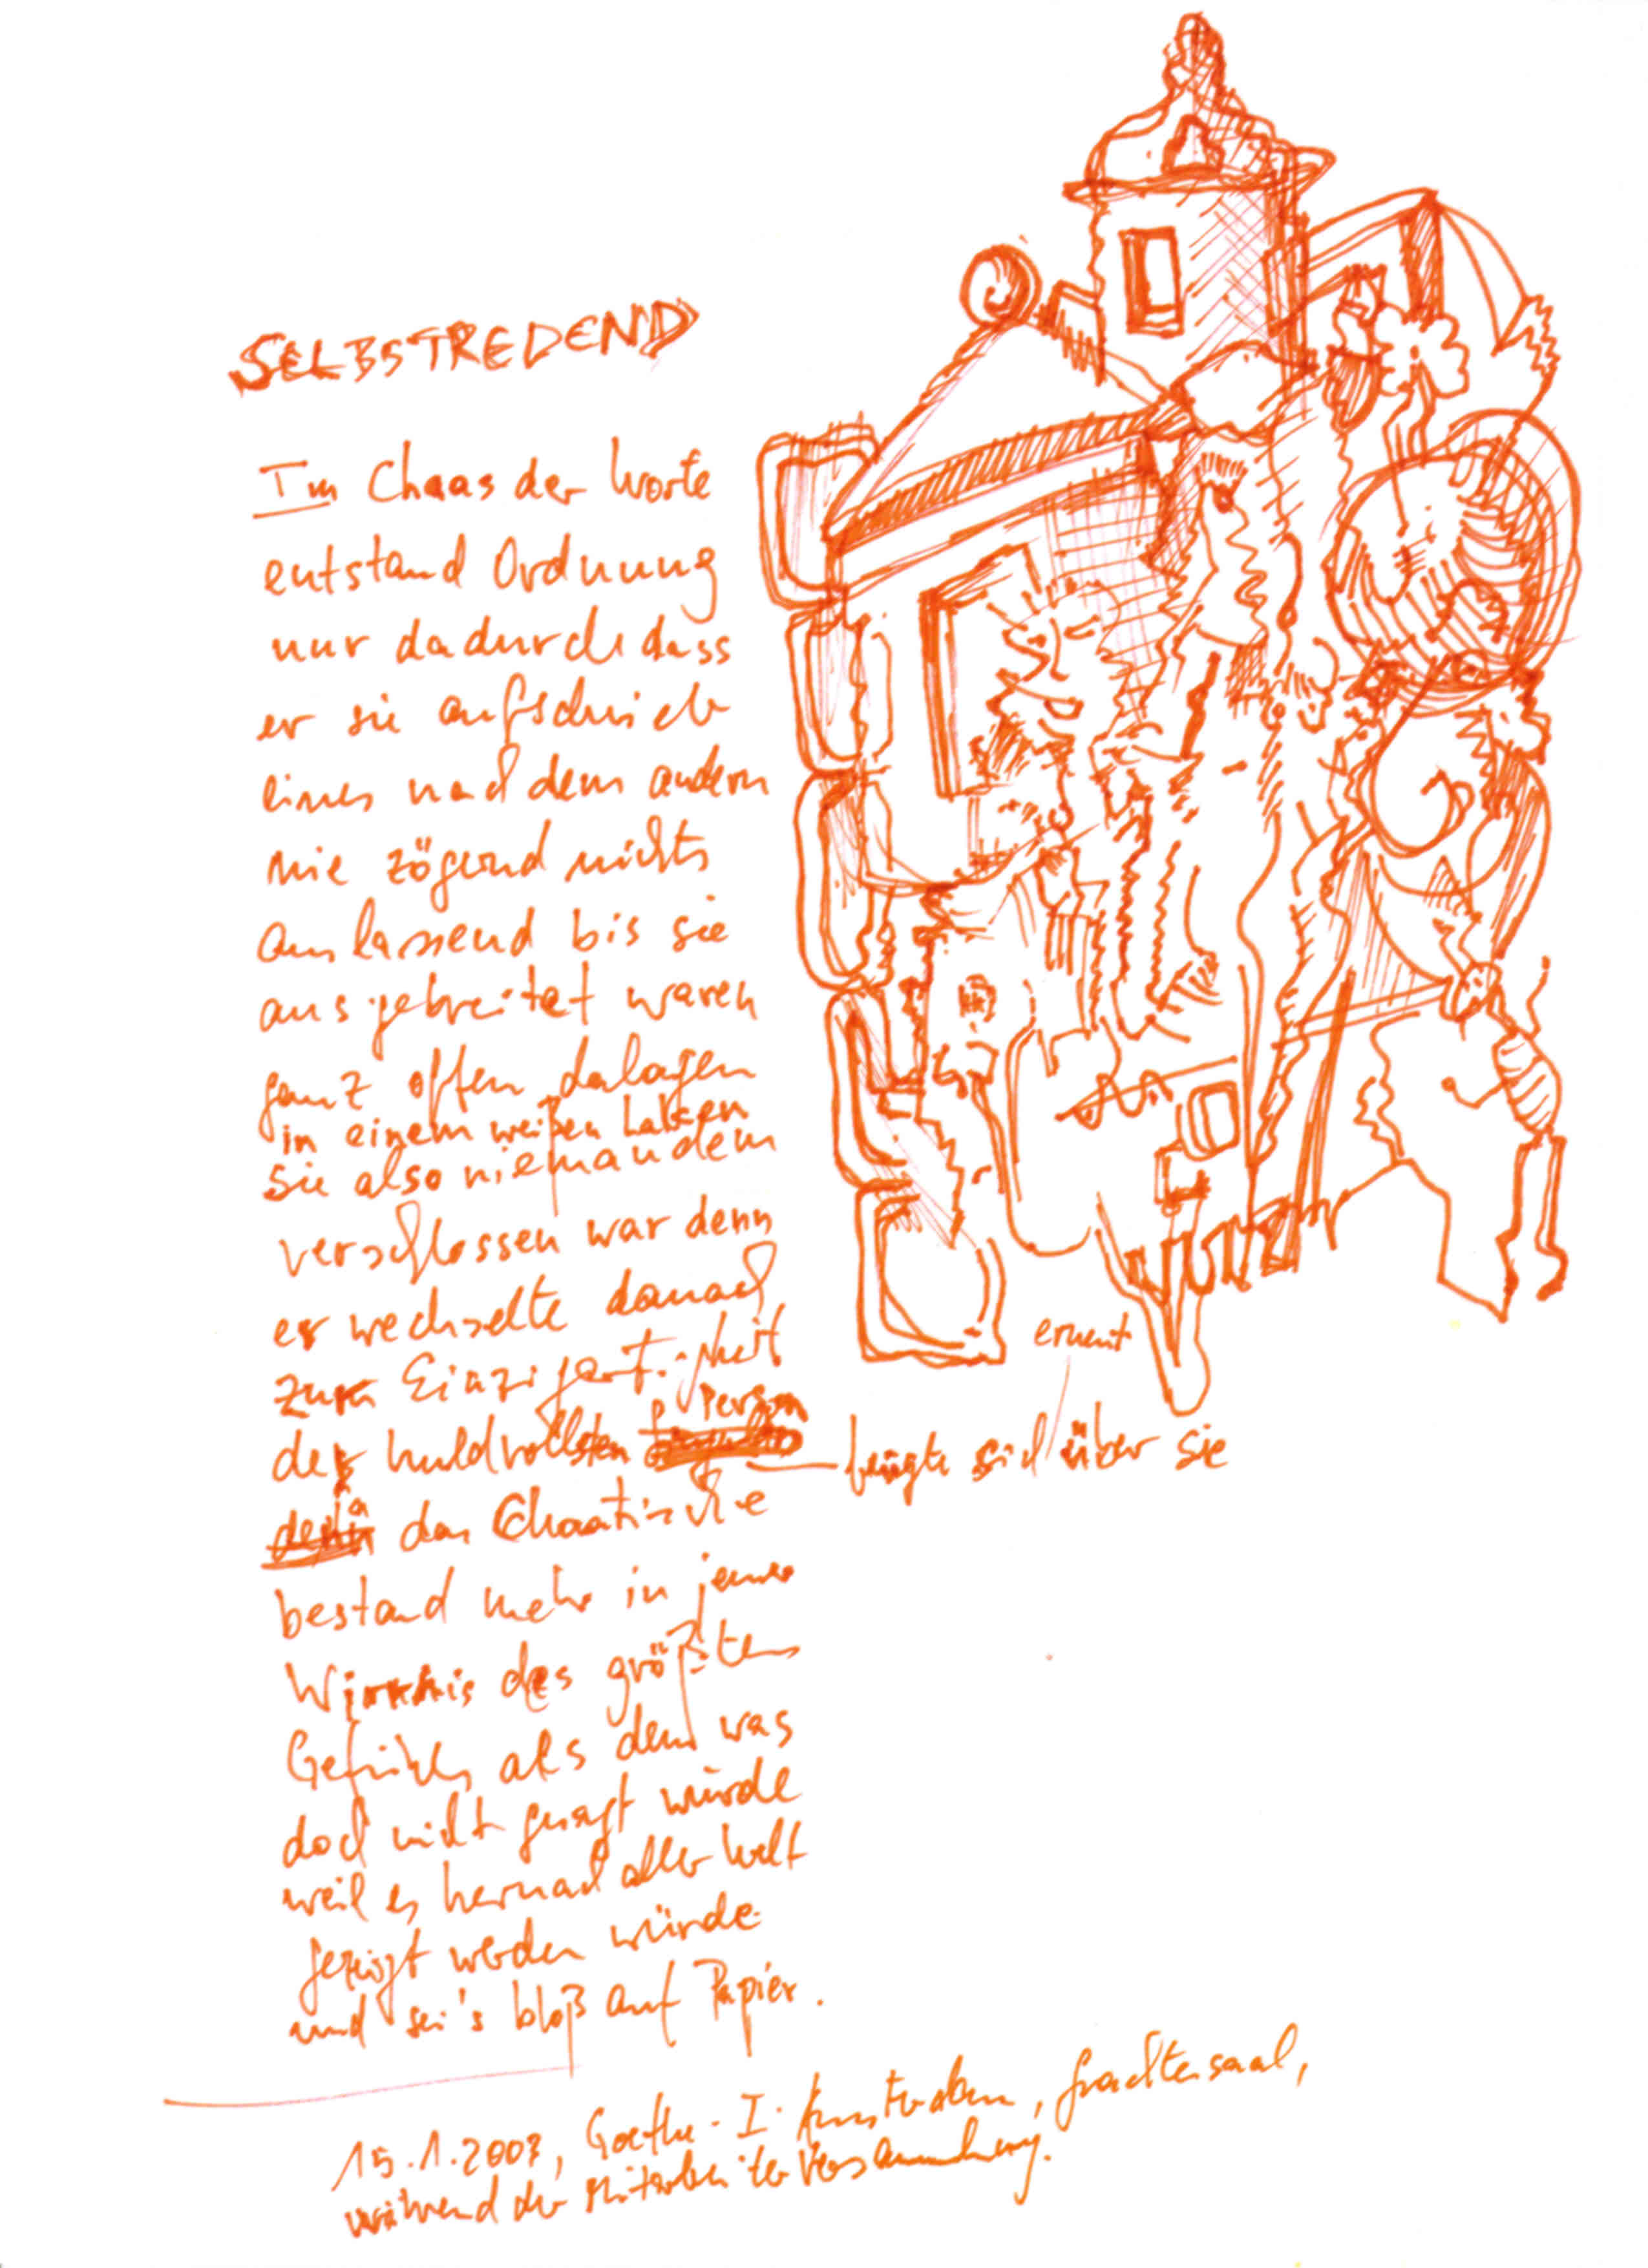 SELBSTREDEND
Im Chaos der Worte
entstand Ordnung
nur dadurch dass
er sie aufschrieb
eines nach dem andern
nie zögernd nichts
auslassend bis sie
ausgebreitet waren
ganz offen dalagen
in einem weißen Laken
sie also niemandem
verschlossen war denn
er wechselte danach
zur Einzigartigkeit
Person
der huldvollsten
erneut
beugte sich über sie
ja das Chaotische
bestand mehr in jener
Wirrnis des größten
Gefühls als dem was
doch nicht gesagt würde
weil es hernach aller Welt
gezeigt werden würde
und sei's bloß auf Papier.
15.1.2003, Goethe-I. Amsterdam, Grachtensaal,
während der Mitarbeiterversammlung.